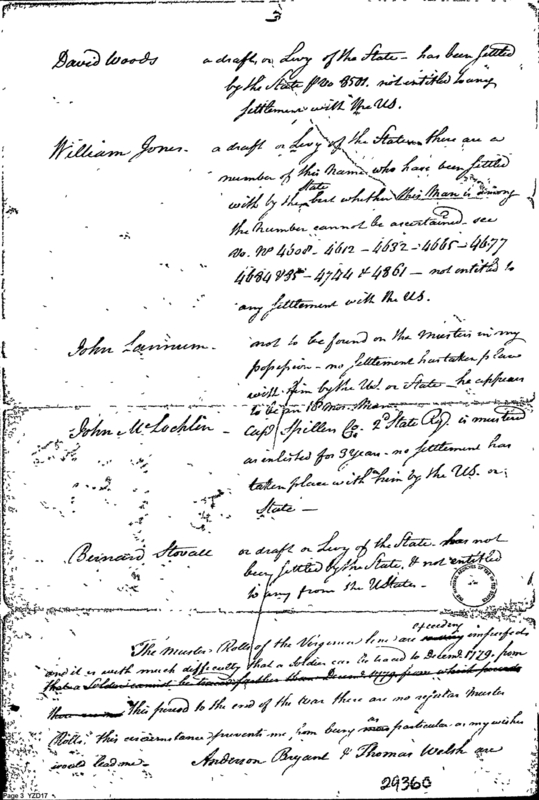 3
David Woods a draft, or Levy of the State - has been settled
by the State pr No 3501. not entitled to any
settlement with the US.
William Jones - a draft or Levy of the State - there are a
number of this name who have been settled
with by the State but whether this Man is among
the number cannot be ascertained - see
No. No 4608 - 4612 - 4632 - 4665 - 4677
4684 & 85 - 4744 & 4861 - not entitled to
any settlement with the US.
John Lannum - not to be found on the musters in my
possession - no settlement has taken place
with him by the US. or State - he appears
to be an 18 mos. Man
John McLochlin - Capt Spillers Co. 2d State Regt. is mustered
as enlisted for 3 years - no settlement has
taken place with him by the US. or
State -
Bernard Stovall or draft or Levy of the State has not
been settled by the State, & not entitled
to any from the UStates -
exceeding
The Muster Rolls of the Virginia line are imperfect
and it is with much difficulty that a Soldier can be traced to Decemr. 1779. from
that a Soldier cannot be traced further than Decemr 1779 from which period
this period to the end of the War there are no regular muster
Rolls. this circumstance prevents me, from being as particular as my wishes
would lead me - Anderson Bryant & Thomas Welsh are
29360
Page 3 YZD17